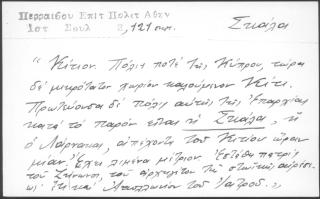 Περραιβου Επιτ Πολιτ Αθεν Σκάλα
Ιστ Σουλ 2,121 σημ.
"Κίτιον. Πόλις ποτέ τῆς Κύπρου, τώρα
δέ μικρότατον χωρίον καλούμενον Κίτι.
Πρωτεύουσα δέ πόλις αὐτῆς τῆς ἐπαρχίας
κατά τό παρόν εἶναι ἡ Σκάλα, ἤ
ὁ Λάρνακας, ἀπέχουσα τοῦ Κιτίου ὥραν
μίαν. Ἔχει λιμένα μέτριον. Ἐστάθη πατρίς
τοῦ Ζήνωνος, τοῦ ἀρχηγέτου τῆς στωϊκῆς αἱρέσε-
ως, ἔτι καί Ἀπολλωνίου τοῦ ἰατροῦ.",